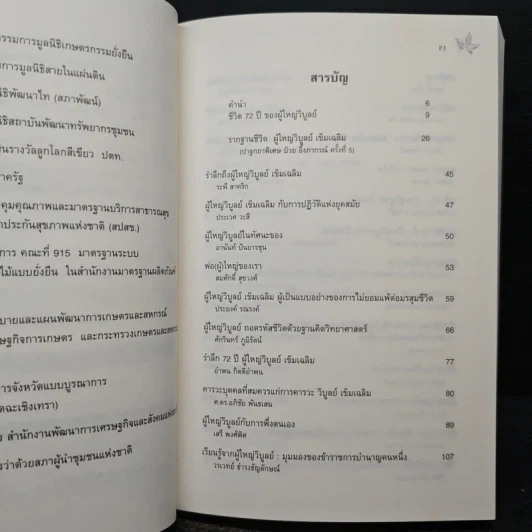 รรมการมูลนิธิเกษตรกรรมยั่งยืน
การมูลนิธิสายใยแผ่นดิน
ธิพัฒนาไท (สภาพัฒน์)
ธิสถาบันพัฒนาทรัพยากรชุมชน
นรางวัลลูกโลกสีเขียว ปตท.
าครัฐ
คุมคุณภาพและมาตรฐานบริการสาธารณสุข
ประกันสุขภาพแห่งชาติ (สปสช.)
การ คณะที่ 915 มาตรฐานระบบ
ไม้แบบยั่งยืน ในสำนักงานมาตรฐานผลิตภัณฑ์
บายและแผนพัฒนาการเกษตรและสหกรณ์
ษฐกิจการเกษตร และกระทรวงเกษตรและสหกรณ์
การจังหวัดแบบบูรณาการ
ดฉะเชิงเทรา)
สำนักงานพัฒนาการเศรษฐกิจและสังคมแห่งช
รว่าด้วยสภาผู้นำชุมชนแห่งชาติ
15
สารบัญ
คำนำ 6
ชีวิต 72 ปี ของผู้ใหญ่วิบูลย์ 9
รากฐานชีวิต ผู้ใหญ่วิบูลย์ เข็มเฉลิม 26
(ปาฐกถาพิเศษ ป๋วย อึ๊งภากรณ์ ครั้งที่ 5)
รำลึกถึงผู้ใหญ่วิบูลย์ เข็มเฉลิม 45
ระพี สาคริก
ผู้ใหญ่วิบูลย์ เข็มเฉลิม กับการปฏิวัติแห่งยุคสมัย 47
ประเวศ วะสี
ผู้ใหญ่วิบูลย์ในทัศนะของ 50
อานันท์ ปันยารชุน
พ่อ(ผู้)ใหญ่ของเรา 53
สมศักดิ์ สุขวงศ์
ผู้ใหญ่วิบูลย์ เข็มเฉลิม ผู้เป็นแบบอย่างของการไม่ยอมแพ้ต่อมรสุมชีวิต 59
ประยงค์ รณรงค์
ผู้ใหญ่วิบูลย์ ถอดรหัสชีวิตด้วยฐานคิดวิทยาศาสตร์ 66
ศักรินทร์ ภูมิรัตน์
รำลึก 72 ปี ผู้ใหญ่วิบูลย์ เข็มเฉลิม 77
อำพน กิตติอำพน
คารวะบุคคลที่สมควรแก่การคารวะ วิบูลย์ เข็มเฉลิม 80
ศ.ดร.อภิชัย พันธเสน
ผู้ใหญ่วิบูลย์กับการพึ่งตนเอง 89
เสรี พงศ์พิศ
เรียนรู้จากผู้ใหญ่วิบูลย์ : มุมมองของข้าราชการบำนาญคนหนึ่ง 107
วนเวทย์ ธำรงธัญลักษณ์